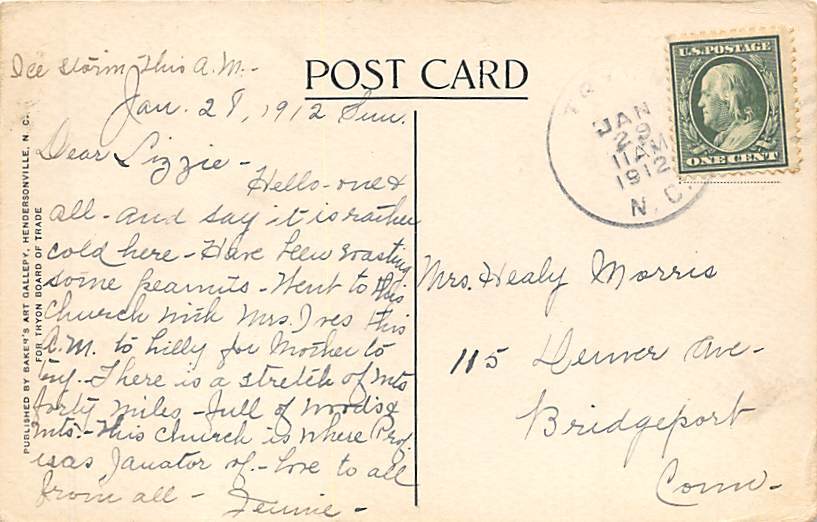 Ice storm this A.M.-
POST CARD
Jan. 28, 1912 Sun.
Dear Lizzie-
Hello-one &
all-and say it is rather
cold here-Have been roasting
some peanuts-Went to this
Church with Mrs. Ives this
A.M. to hilly for Mother to
try.-There is a stretch of mts
forty miles-full of woods &
mts.-This church is where Prof.
is as Janator of.-Love to all
from all-
Jennie-
PUBLISHED BY BAKER'S ART GALLERY, HENDERSONVILLE, N. C.
FOR TRYON BOARD OF TRADE
U.S. POSTAGE
ONE CENT
JAN
29
11 AM
1912
N.C.
Mrs. Healy Morris
115 Denver Ave-
Bridgeport
Conn-